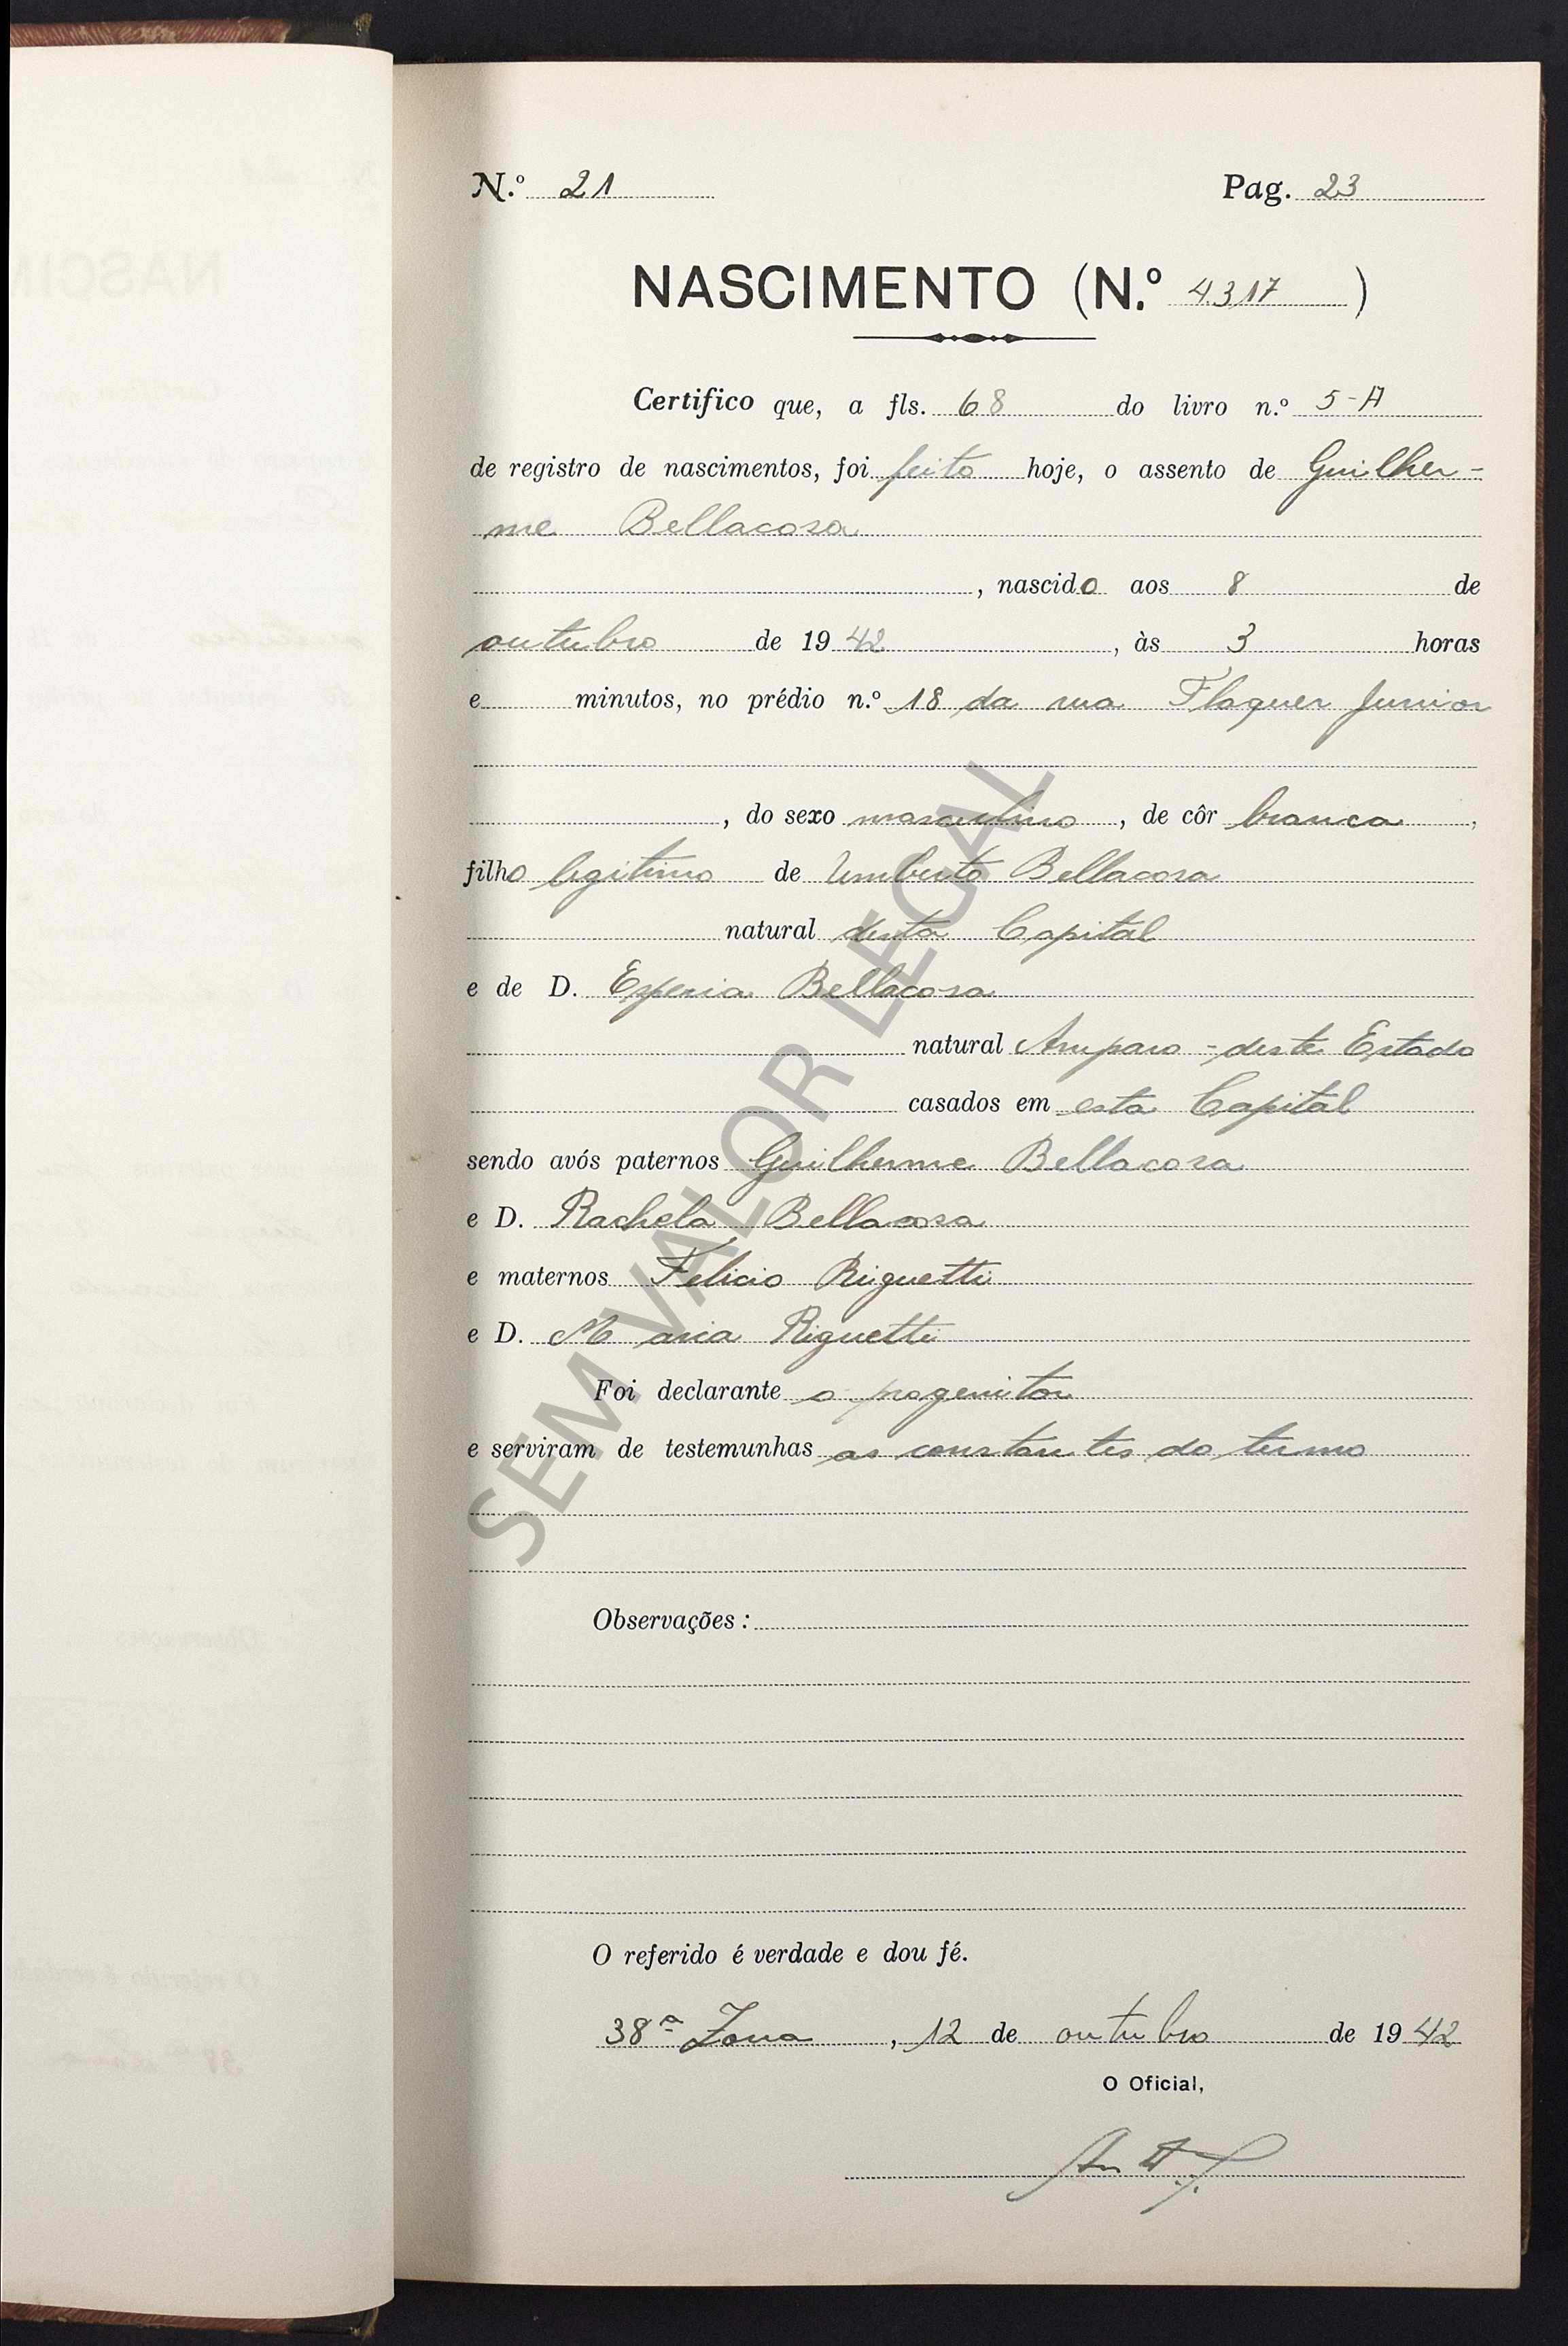 N.º 21 Pag. 23
NASCIMENTO (N.º 4317)
Certifico que, a fls. 68 do livro n.º 5-A
de registro de nascimentos, foi feito hoje, o assento de Guilher-
me Bellacosa
, nascido aos 8 de
outubro de 1942, às 3 horas
e minutos, no prédio n.º 18 da rua Flaquer Junior
, do sexo masculino, de côr branca,
filho legitimo de Umberto Bellacosa
natural desta Capital
e de D. Esperia Bellacosa
natural Amparo - deste Estado
casados em esta Capital
sendo avós paternos Guilherme Bellacosa
e D. Rachela Bellacosa
e maternos Felicio Riguetti
e D. Maria Riguetti
Foi declarante o progenitor
e serviram de testemunhas as constantes do termo
Observações:
O referido é verdade e dou fé.
38ª Zona, 12 de outubro de 1942
O Oficial,
SEM VALOR LEGAL